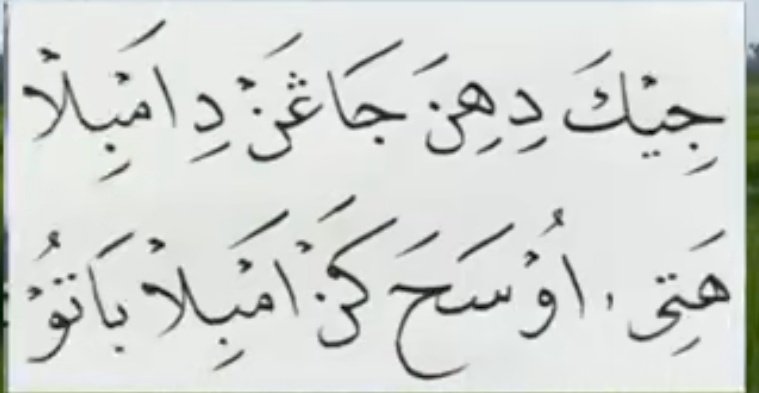 جِيْكَ دِهِنَ جَاڠَنْ دِ اَمْبِلْ
هَتِى ، اُوْسَحَ كَنْ اَمْبِلْ بَاتُوْ